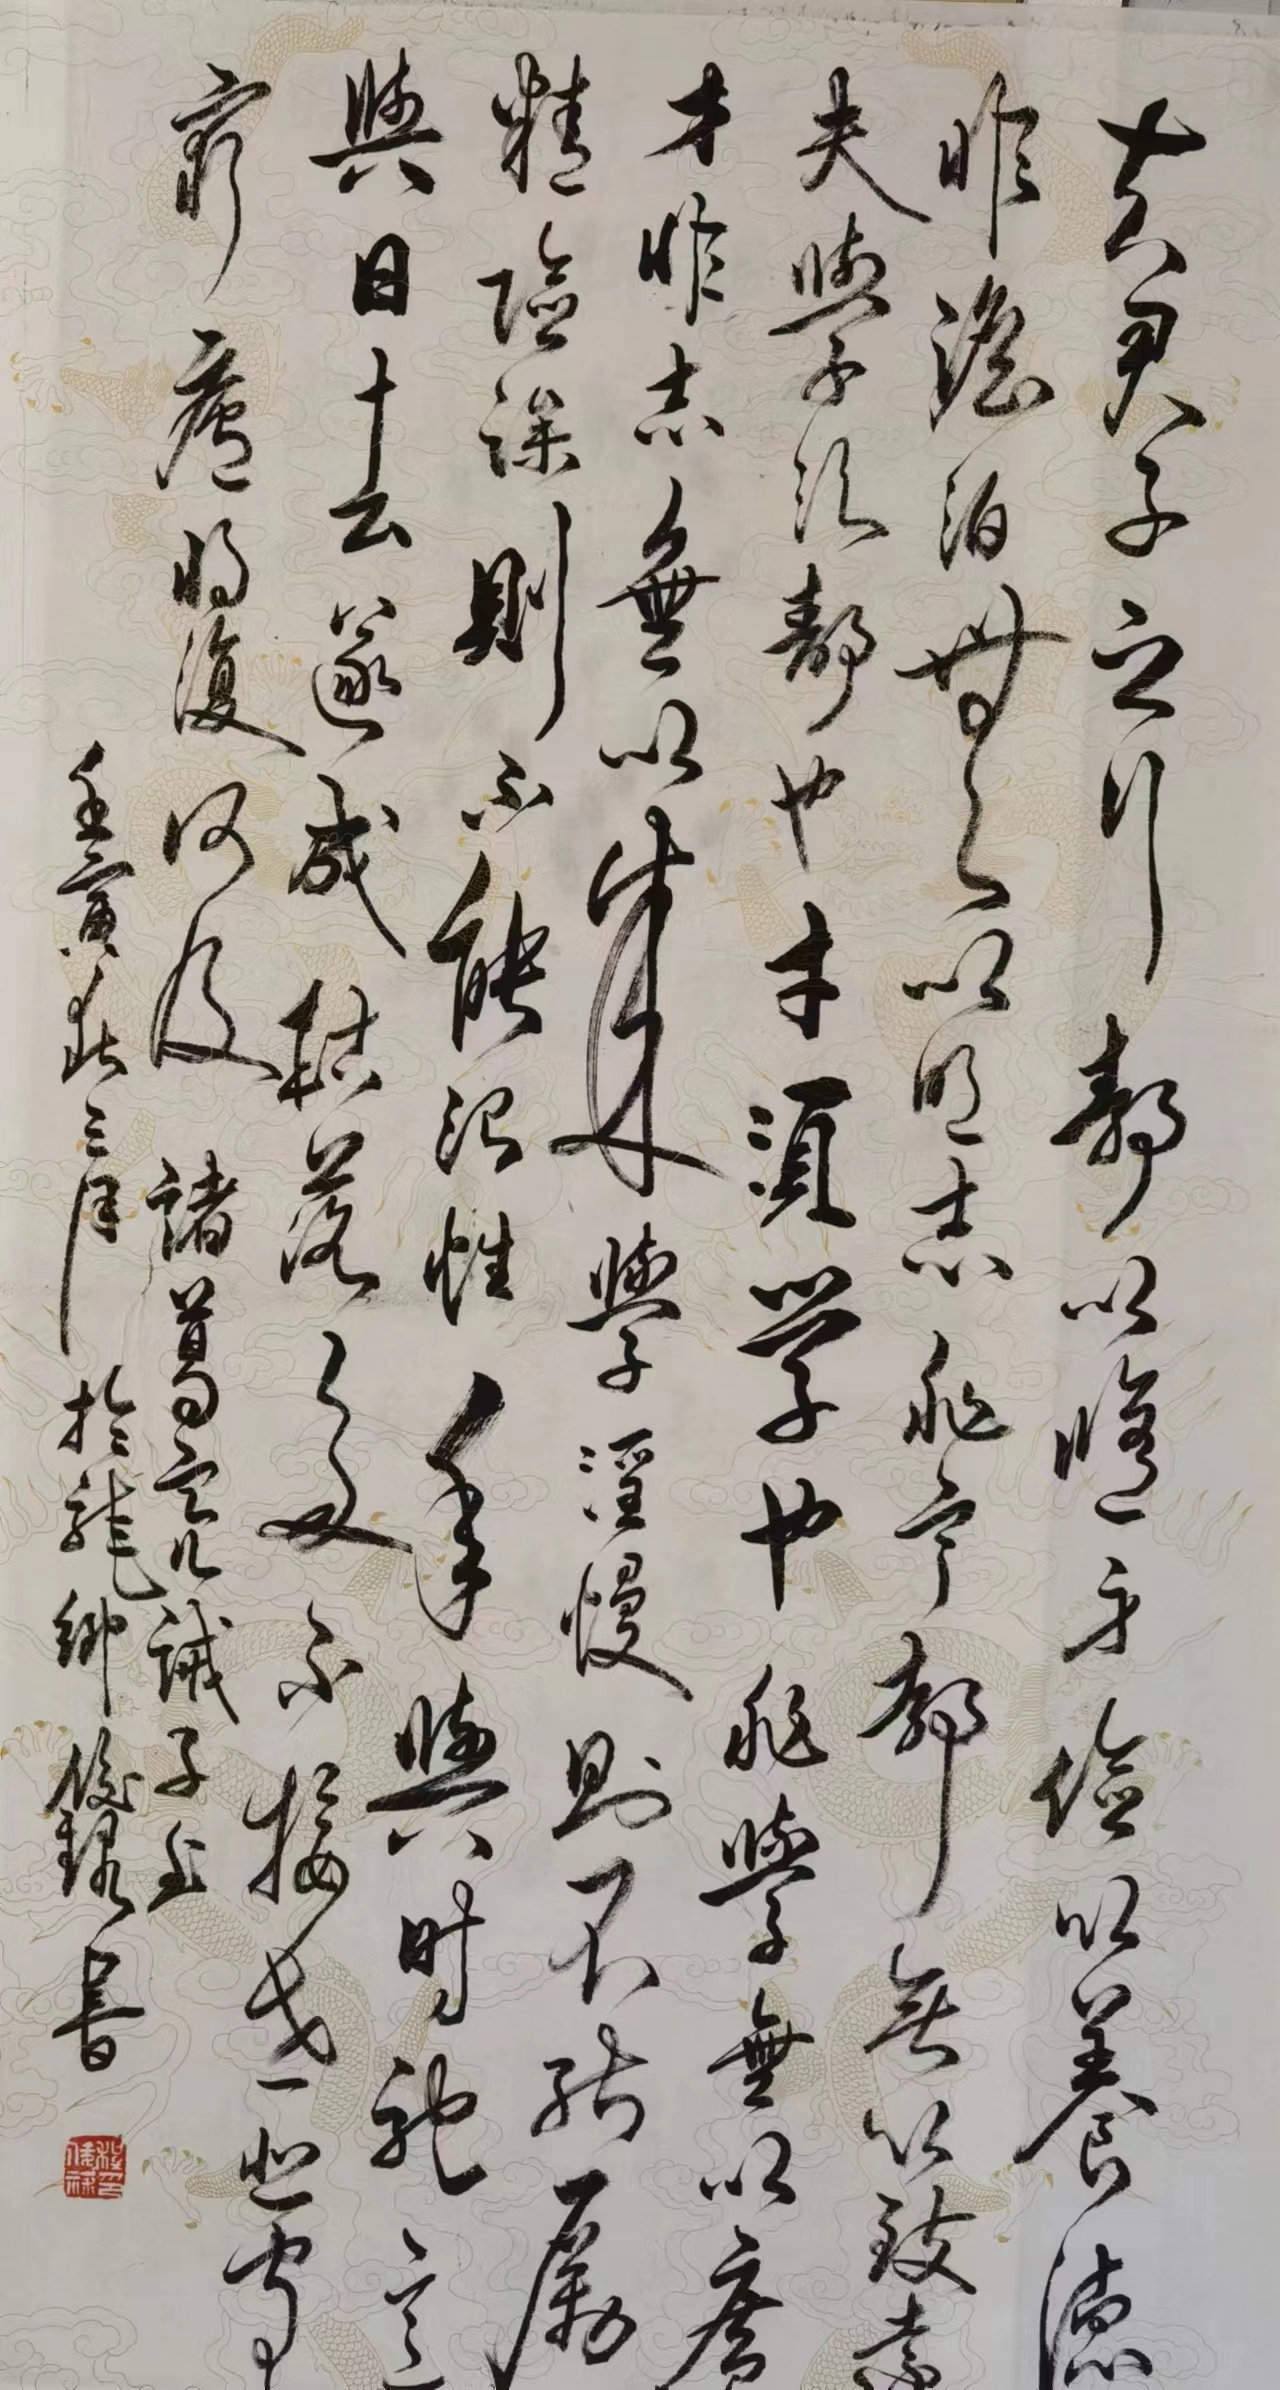 夫君子之行靜以脩身儉以養德
非澹泊無以明志非寧靜無以致遠
夫學須靜也才須學也非學無以廣
才非志無以成學淫慢則不能勵
精險躁則不能治性年與時馳意
與日去遂成枯落多不接世悲守
窮廬將復何及 諸葛亮誡子書
壬寅秋三月於龍鄉俊録書